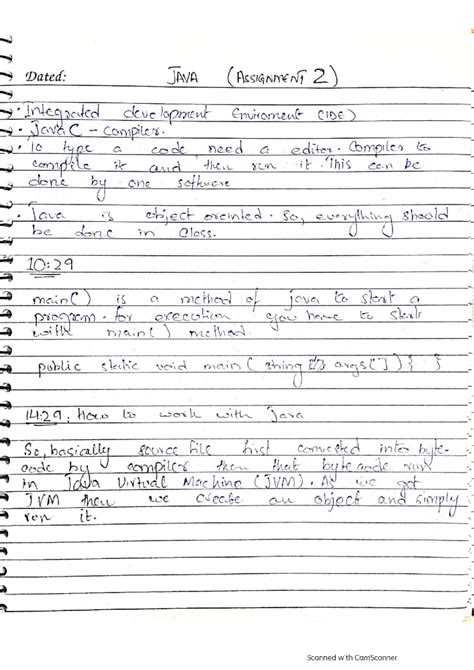 Dated: JAVA (ASSIGNMENT 2)
• Integrated development Enviroment (IDE)
• JavaC - compiler.
• To type a code, need a editor. Compiler to
compile it and then run it. This can be
done by one software
• Java is object oreinted. So, everything should
be done in class.
10:29
main() is a method of java to start a
program. for execution you have to start
with main() method.
public static void main( string args[]) { }
14:29: How to work with Java
So, basically source file first converted into byte-
code by compiler then that bytecode run
in Java Virtual Machine (JVM). As we get
JVM then we create an object and simply
run it.
Scanned with CamScanner